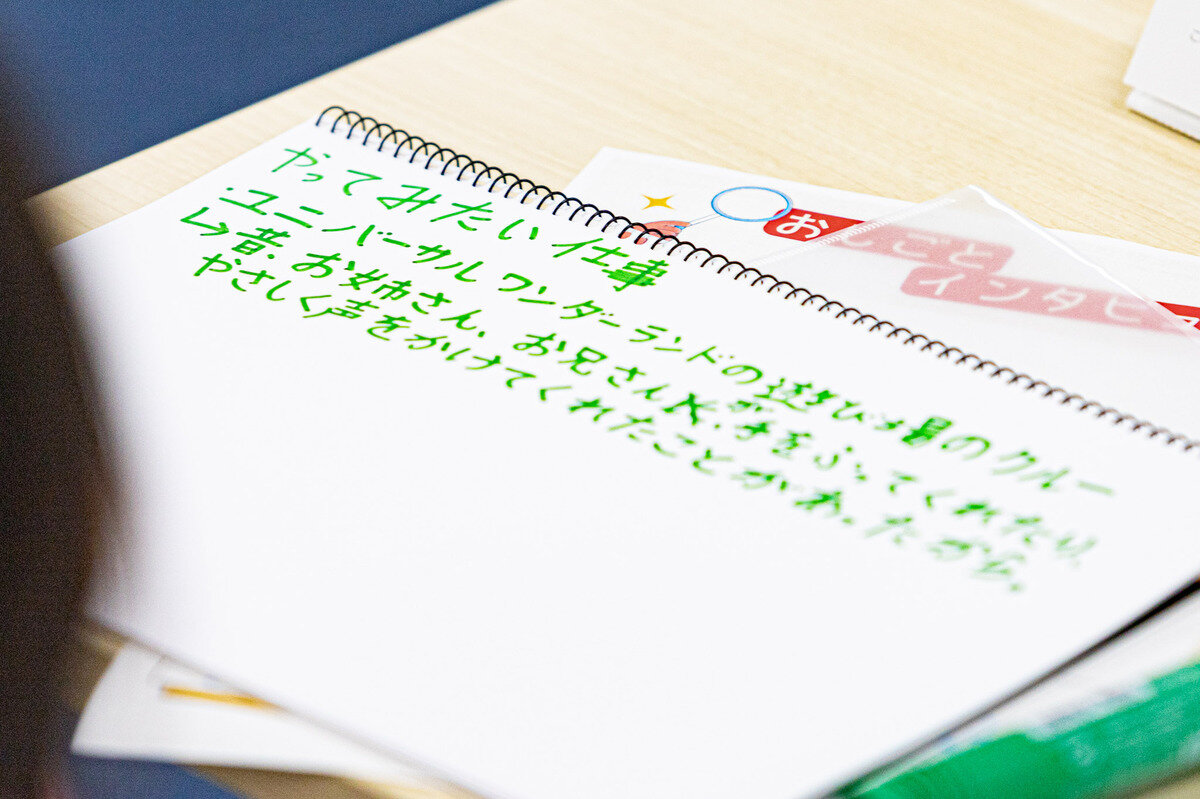 やってみたい仕事
・ユニバーサルワンダーランドの遊び場のクルー
↳昔、お姉さん、お兄さんが手をふってくれたり、
やさしく声をかけてくれたことがあったから。
おしごと
インタビ